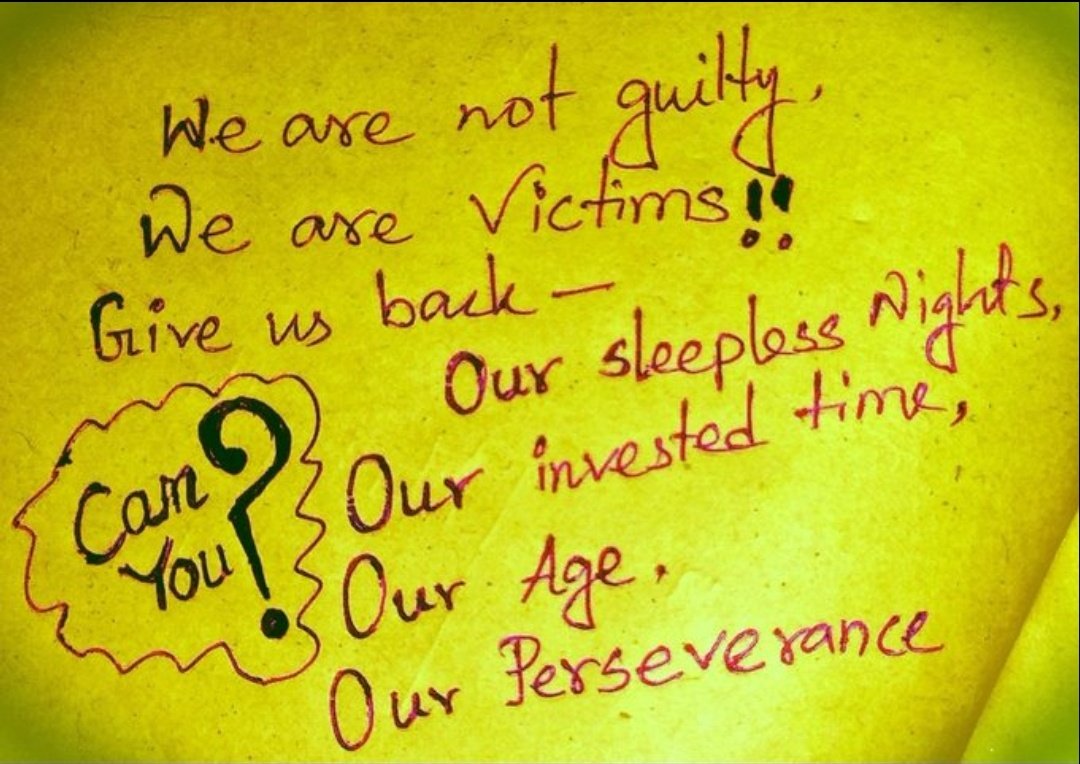 We are not guilty,
We are Victims!!
Give us back —
Our sleepless Nights,
Our invested time,
Our Age,
Our Perseverance
Can
You ?